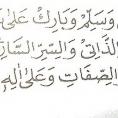 وَسَلِّمْ وَبَارِكْ عَلَىٰ
الذَّاتِىِّ وَالسِّرِّ السَّارِ
الصِّفَاتِ وَعَلَىٰ اٰلِهِ